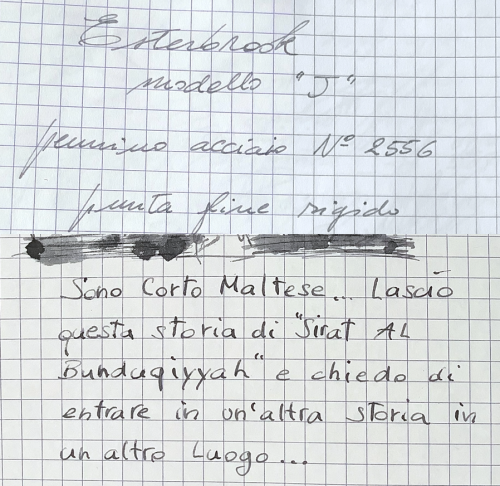 Esterbrook
modello "J"
pennino acciaio Nº 2556
punta fine rigido
Sono Corto Maltese... Lascio
questa storia di "Sirat AL
Bunduqiyyah" e chiedo di
entrare in un'altra storia in
un altro Luogo...